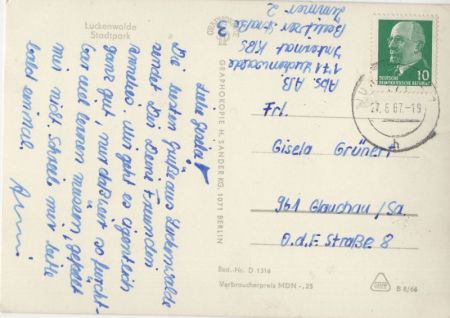 Luckenwalde
Stadtpark
Liebe Gisela!
Die besten Grüße aus Luckenwalde
sendet Dir Deine Freundin
Annelies. Mir geht es eigentlich
ganz gut, nur daß wir so furcht-
bar viel lernen müssen, gefällt
mir nicht. Schreib mir bitte
bald einmal.
GRAPHOKOPIE H. SANDER KG, 1071 BERLIN
Abs. A.B.
171 Luckenwalde
Internat KBS
Beelitzer Straße
Zimmer 2
10
DEUTSCHE DEMOKRATISCHE REPUBLIK
27.6.67.-19
h
Frl.
Gisela Grünert
961 Glauchau/Sa.
O.d.F. Straße 8
Best.-Nr. D 1316
Verbraucherpreis MDN -,25
B 8/66